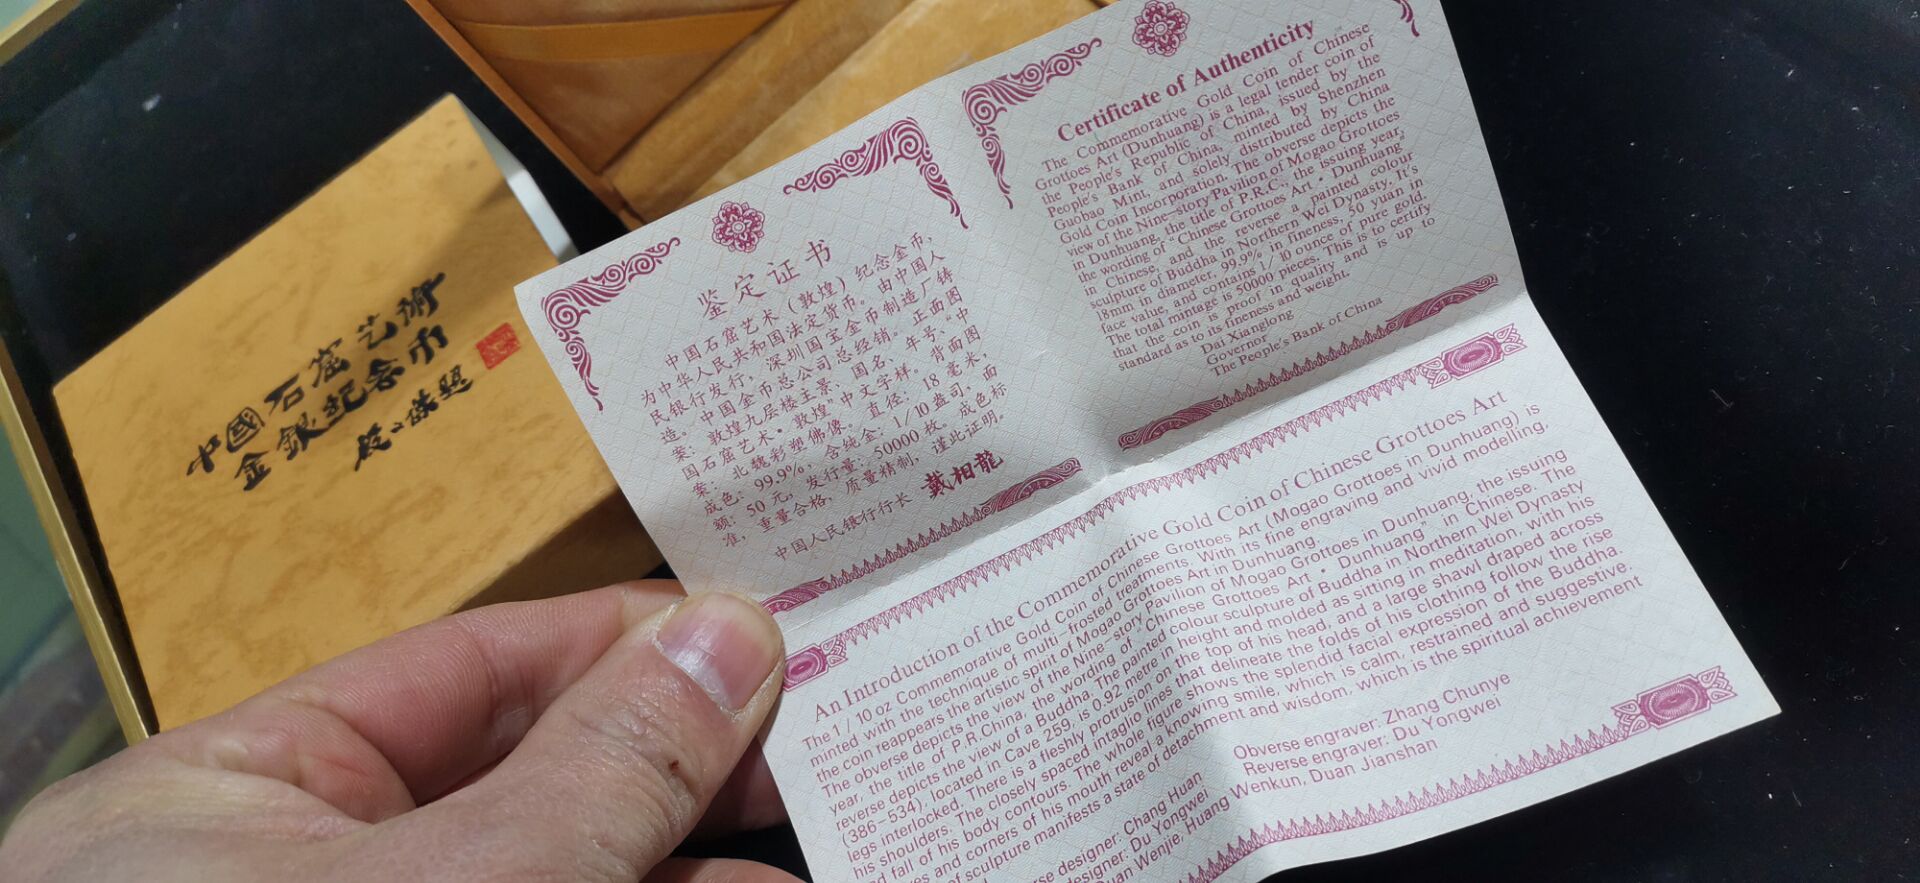 中國石窟艺術
金銀紀念币
鉴定证书
中国石窟艺术（敦煌）纪念金币，
为中华人民共和国法定货币。由中国人
民银行发行，深圳国宝金币制造厂铸
造。中国金币总公司总经销。正面图
案：敦煌九层楼主景、国名、年号、“中
国石窟艺术·敦煌”中文字样。背面图
案：北魏彩塑佛像。直径：18毫米，
成色：99.9%，含纯金：1/10盎司，面
额：50元，发行量：50000枚。成色标
准，重量合格，质量精制，谨此证明。
中国人民银行行长 戴相龍
Certificate of Authenticity
The Commemorative Gold Coin of Chinese
Grottoes Art (Dunhuang) is a legal tender coin of
the People's Republic of China, issued by the
People's Bank of China, minted by Shenzhen
Guobao Mint, and solely distributed by China
Gold Coin Incorporation. The obverse depicts the
view of the Nine-story Pavilion of Mogao Grottoes
in Dunhuang, the title of P.R.C., the issuing year,
the wording of "Chinese Grottoes Art · Dunhuang"
in Chinese, and the reverse a painted colour
sculpture of Buddha in Northern Wei Dynasty. It's
18mm in diameter, 99.9% in fineness, 50 yuan in
face value, and contains 1/10 ounce of pure gold.
The total mintage is 50000 pieces. This is to certify
that the coin is proof in quality and is up to
standard as to its fineness and weight.
Dai Xianglong
Governor
The People's Bank of China
An Introduction of the Commemorative Gold Coin of Chinese Grottoes Art
The 1/10 oz Commemorative Gold Coin of Chinese Grottoes Art (Mogao Grottoes in Dunhuang) is
minted with the technique of multi-frosted treatments. With its fine engraving and vivid modelling,
the coin reappears the artistic spirit of Mogao Grottoes Art in Dunhuang.
The obverse depicts the view of the Nine-story Pavilion of Mogao Grottoes in Dunhuang, the issuing
year, the title of P.R.China, the wording of "Chinese Grottoes Art · Dunhuang" in Chinese. The
reverse depicts the view of a Buddha. The painted colour sculpture of Buddha in Northern Wei Dynasty
(386-534), located in Cave 259, is 0.92 metre in height and molded as sitting in meditation, with his
legs interlocked. There is a fleshly protrusion of the top of his head, and a large shawl draped across
his shoulders. The closely spaced intaglio lines that delineate the folds of his clothing follow the rise
and fall of his body contours. The whole figure shows the splendid facial expression of the Buddha.
and corners of his mouth reveal a knowing smile, which is calm, restrained and suggestive.
of sculpture manifests a state of detachment and wisdom, which is the spiritual achievement
designer: Chang Huan
Obverse engraver: Zhang Chunye
designer: Du Yongwei
Reverse engraver: Du Yongwei
Wenjie, Huang Wenkun, Duan Jianshan